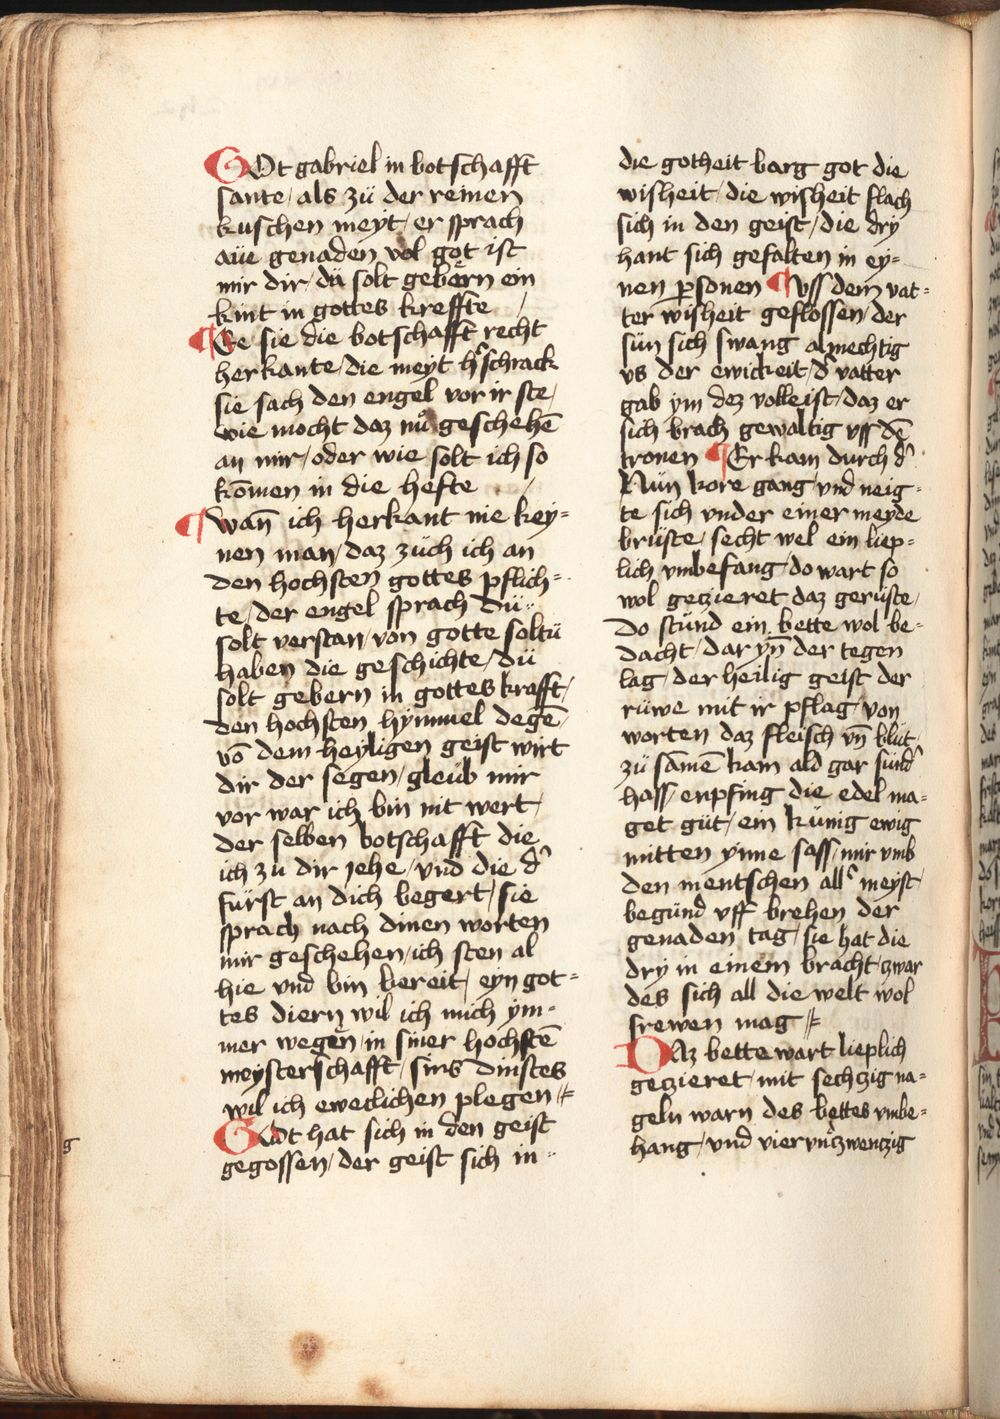 GOt gabriel in botschafft
sante / als zü der reinen
kuschen meyt / er sprach
aüe genaden vol got ist
mir dir / dü solt gebërn ein
kint in gottes kreffte /
¶ Ee sie die botschafft recht
herkante / die meyt h᾽schrack
sie sach den engel vor ir ste /
wie mocht daz nů geschehē
an mir / oder wie solt ich so
kōmen in die hefte /
¶ wañ ich herkant nie key=
nen man / daz züch ich an
den hochsten gottes pflich=
te / der engel sprach dü=
solt verstan / von gotte soltü
haben die geschichte / dü
solt gebern in gottes krafft /
den hochsten hymmel degē /
vō dem heyligen geist wirt
dir der segen / gleüb mir
vor war ich bin nit wert /
der selben botschafft die
ich zu dir jehe / vnd die d᾽
fürst an dich begert / sie
sprach nach dinen worten
mir geschehen / ich sten al
hie vnd bin bereit / eyn got=
tes diern wil ich mich ÿm=
mer wegën / in siner hochstē
meysterschafft / sins dinstes
wil ich eweclichen plegen //
GOt hat sich in den geist
gegossen / der geist sich in=
die gotheit barg got die
wisheit / die wisheit flach
sich in den geist / die dry
hant sich gefalten in ey=
nen ꝑsonen ¶ vss dem vat=
ter wisheit geflossen / der
sün sich swang almechtig
vs der ewickeit / d᾽ vatter
gab ym dez volleist / daz er
sich brach gewaltig vff dē
tronen ¶ Er kam durch d᾽
Nün kore gang / vnd neig=
te sich vnder einer meyde
brüste / secht wel ein liep=
lich vmbefang / do wart so
wol gezieret daz gerüste /
do stünd ein bette wol be=
dacht / dar ÿn der tegen
lag / der heilig geist der
rüwe mit ir pflag / von
worten daz fleisch vñ blüt /
zü samē kam ald gar sünd᾽
hass / enpfing die edel ma=
get güt / ein künig ewig
mitten ynne sass / mir vmb
den mentschen all᾽ meyst /
begünd vff brehen der
genaden tag / sie hat die
dry in einem bracht / zwar
des sich all die welt wol
frewen mag //
DAz bette wart lieplich
gezieret / mit sechzig na=
geln warn des bettes vmbe=
hang / vnd vier vñ zwentzig
g